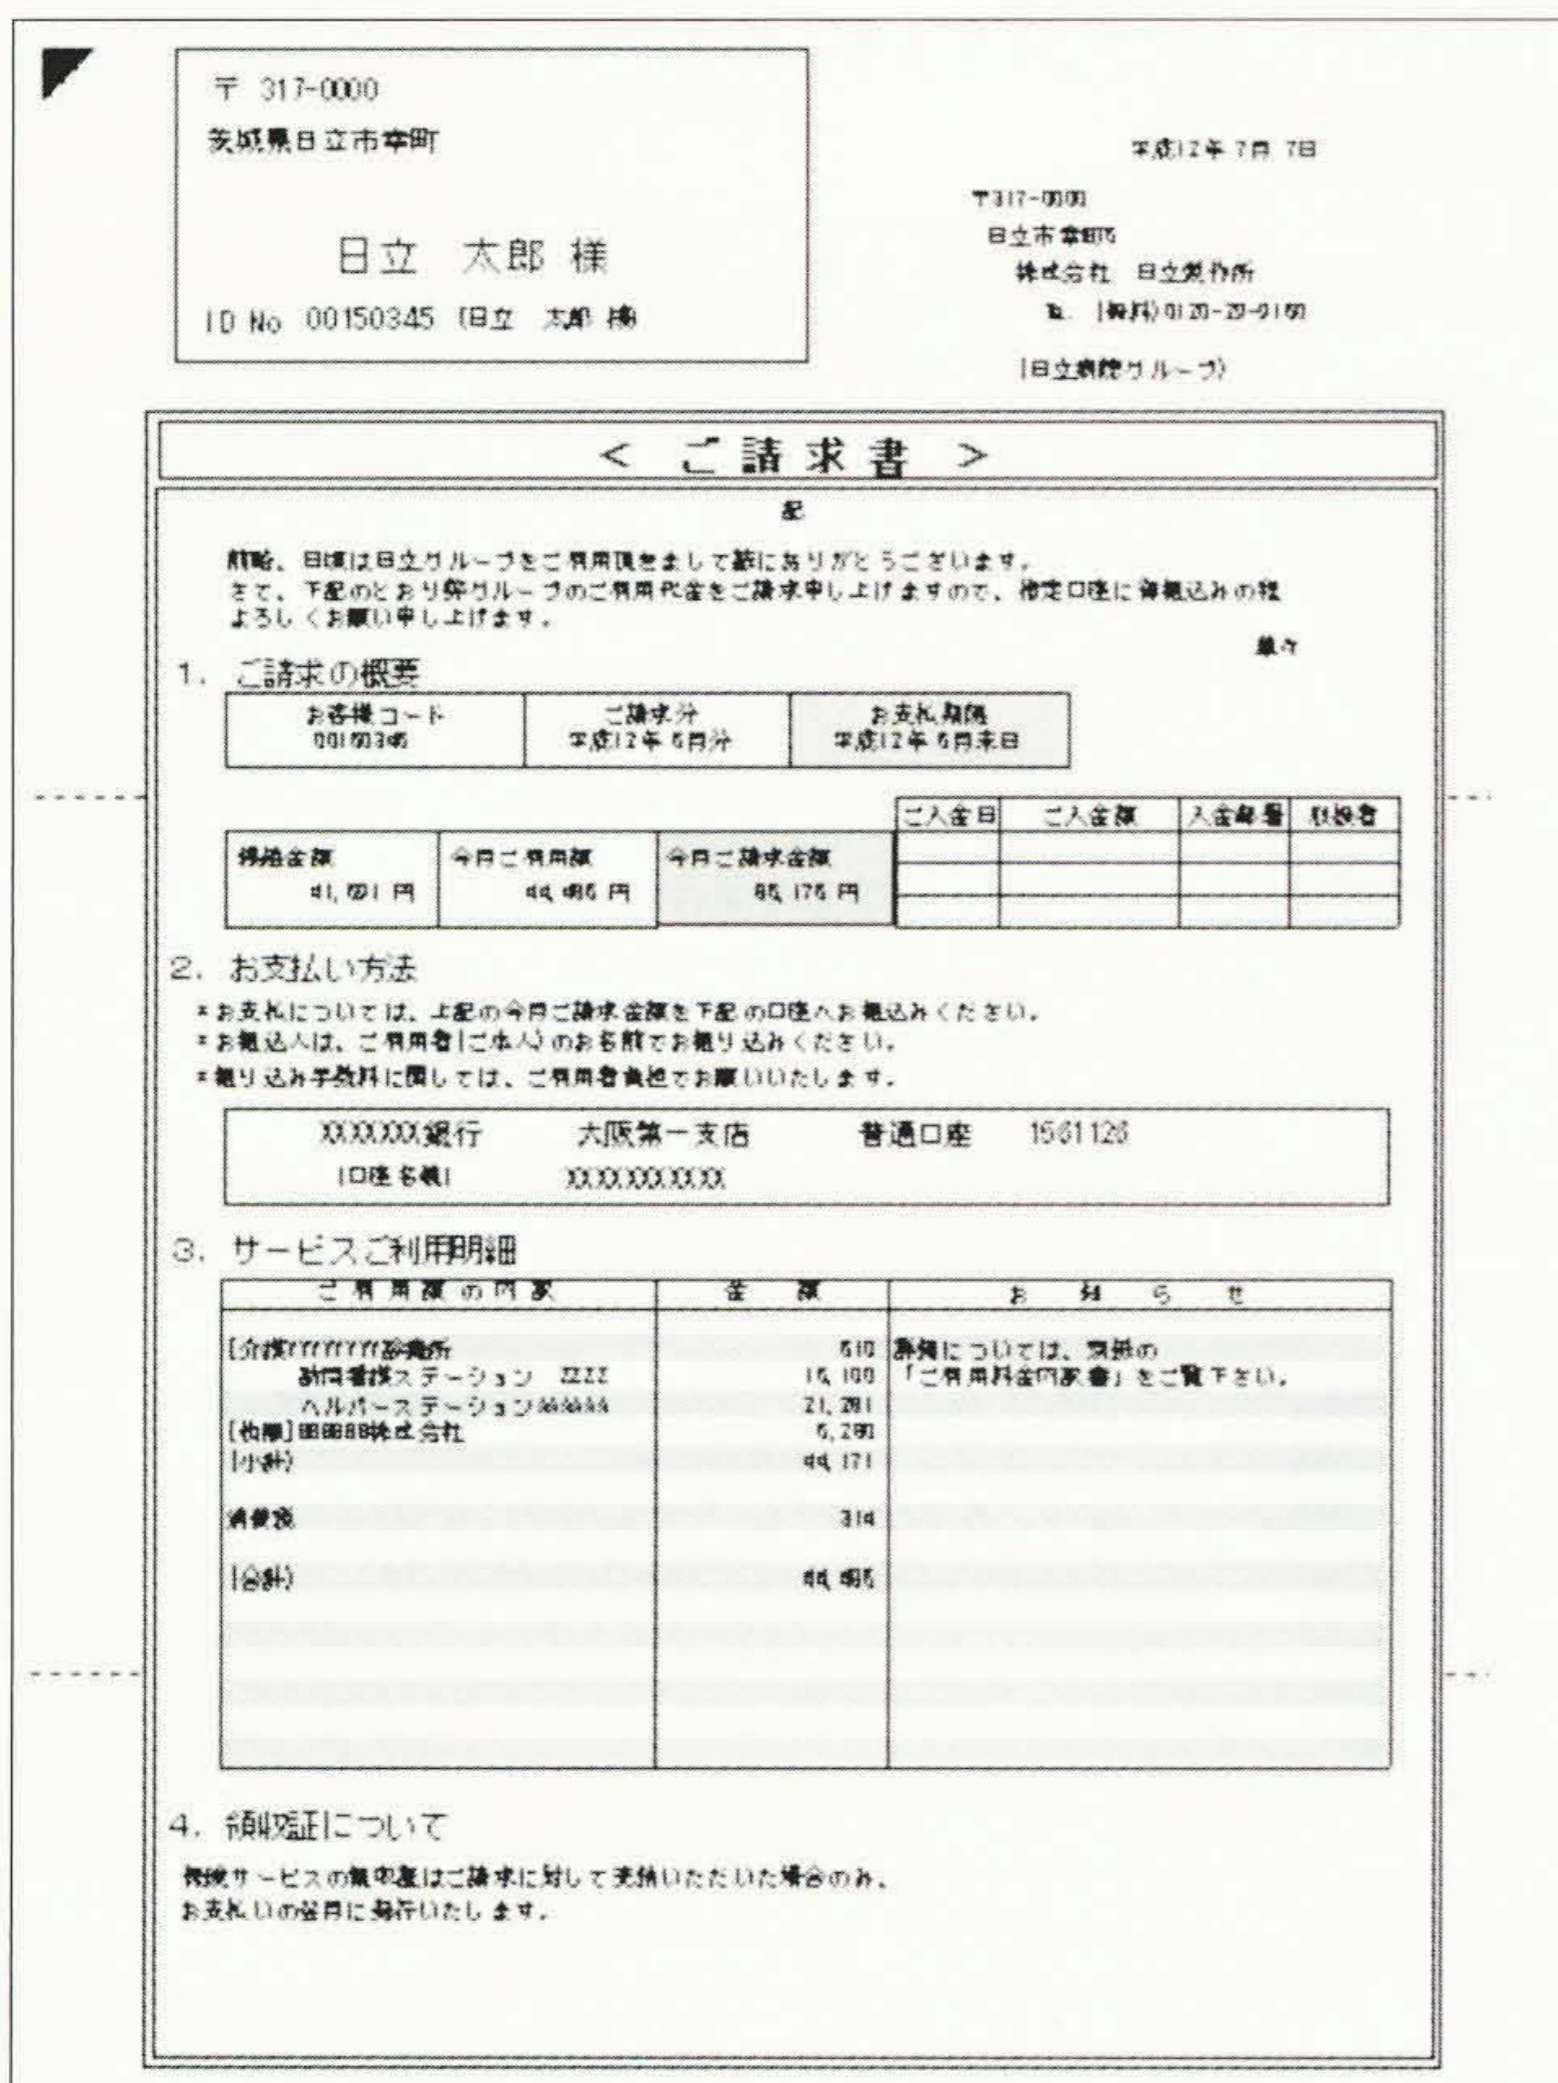 〒 317-0000
茨城県日立市幸町
日立 太郎 様
ID No 00150345 (日立 太郎 様)
平成12年 7月 7日
〒317-0000
日立市幸町
株式会社 日立製作所
(無料)0120-
(日立病院グループ)
< ご請求書 >
記
前略、日頃は日立グループをご利用頂きまして誠にありがとうございます。
さて、下記のとおり弊グループのご利用代金をご請求申し上げますので、指定口座に御振込みの程
よろしくお願い申し上げます。
草々
1. ご請求の概要
お客様コード ご請求分 お支払期限
00150345 平成12年 6月分 平成12年 6月末日
ご入金日 ご入金額 入金部署 取扱者
繰越金額 今月ご利用額 今月ご請求金額
円 円 円
2. お支払い方法
*お支払については、上記の今月ご請求金額を下記の口座へお振込みください。
*お振込人は、ご利用者(ご本人)のお名前でお振り込みください。
*振り込み手数料に関しては、ご利用者負担でお願いいたします。
XXXXXXX銀行 大阪第一支店 普通口座
(口座名義) XXXXXXXXXXX
3. サービスご利用明細
ご利用額の内訳 金 額 お 知 ら せ
[介護]YYYYYYY診療所 詳細については、別紙の
訪問看護ステーション ZZZZ 「ご利用料金内訳書」をご覧下さい。
ヘルパーステーションAAAAAA
BBBBBB株式会社
(小計) 44,171
消費税 314
(合計) 44,485
4. 領収証について
保険サービスの領収証はご請求に対して完納いただいた場合のみ、
お支払いの翌月に発行いたします。